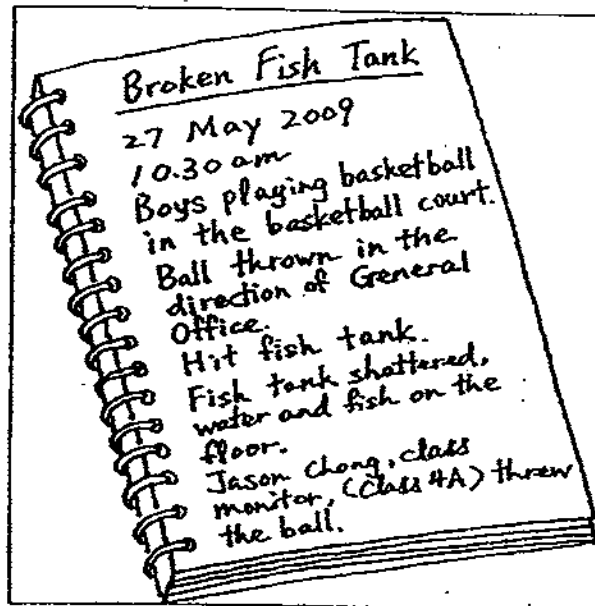 Broken Fish Tank
27 May 2009
10.30 am
Boys playing basketball
in the basketball court.
Ball thrown in the
direction of General
Office.
Hit fish tank.
Fish tank shattered,
water and fish on the
floor.
Jason Chong, class
monitor, (Class 4A) threw
the ball.